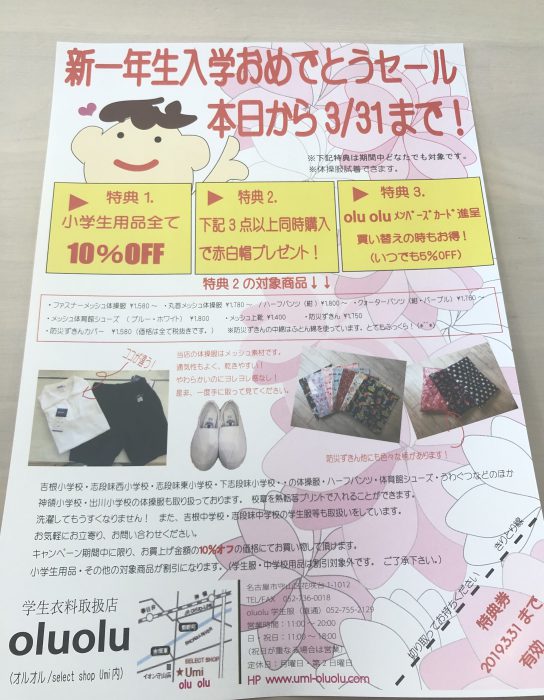 新一年生入学おめでとうセール
本日から3/31まで！
※下記特典は期間中どなたでも対象です。
※体操服試着できます。
特典1.
小学生用品全て
10%OFF
特典2.
下記3点以上同時購入
で赤白帽プレゼント！
特典3.
olu olu ﾒﾝﾊﾞｰｽﾞｶｰﾄﾞ進呈
買い替えの時もお得！
(いつでも5%OFF)
特典2の対象商品↓↓
・ファスナーメッシュ体操服 ¥1,580〜 ・丸首メッシュ体操服 ¥1,780〜 / ハーフパンツ（紺）¥1,800〜 ・クォーターパンツ（紺・パープル）¥1,760〜
・メッシュ体育館シューズ （ブルー・ホワイト） ¥1,800 ・メッシュ上靴 ¥1,400 ・防災ずきん ¥1,750
・防災ずきんカバー ¥1,580（価格は全て税抜きです。） ※防災ずきんの中綿はふとん綿を使っています。とてもふっくら！
ココが違う！
当店の体操服はメッシュ素材です。
通気性もよく、乾きやすい！
やわらかいのにヨレヨレ感なし！
是非、一度手に取って見てください。
防災ずきん他にも色々な柄があります！
吉根小学校・志段味西小学校・志段味東小学校・下志段味小学校・の体操服・ハーフパンツ・体育館シューズ・うわぐつなどのほか
神領小学校・出川小学校の体操服も取り扱っております。 校章を熱転写プリントで入れることができます。
洗濯してもうすくなりません！ また、吉根中学校・志段味中学校の学生服等も取扱いをしています。
お気軽にお立寄り、お問い合わせください。
キャンペーン期間中に限り、お買上げ金額の10%オフの価格にてお買い物して頂けます。
小学生用品・その他の対象商品が割引になります。(学生服・中学校用品は割引対象外です。 ご了承下さい。)
学生衣料取扱店
oluolu
(オルオル/select shop Umi内)
SELECT SHOP
★Umi
olu olu
名古屋市守山区花咲台1-1012
TEL/FAX 052-736-0018
oluolu 学生服（直通）052-755-2129
営業時間：11:00〜20:00
日・祝日：11:00〜18:00
(祝日が重なる場合は営業)
定休日：月曜日・第2日曜日
HP www.umi-oluolu.com
きりとり線
切り取ってお持ちください
特典券
2019.3.31まで
有効